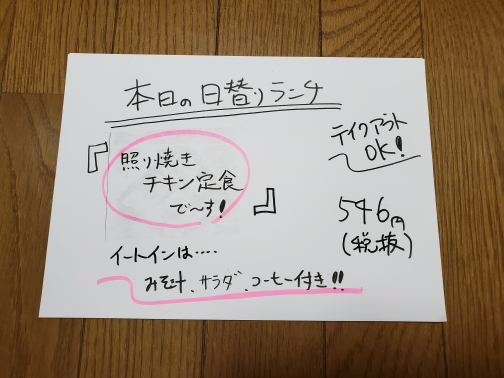 本日の日替りランチ
『照り焼き
チキン定食
で〜す!』
テイクアウト
OK!
546円
(税抜)
イートインは‥‥
みそ汁、サラダ、コーヒー付き!!